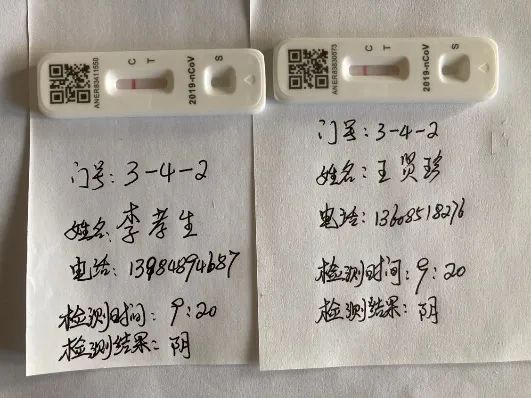 ANER83411550
C T
2019-nCoV
S
门号: 3-4-2
姓名: 李孝生
电话: 13984894687
检测时间: 9:20
检测结果: 阴
ANER83830673
C T
2019-nCoV
S
门号: 3-4-2
姓名: 王贤珍
电话: 13608518276
检测时间: 9:20
检测结果: 阴